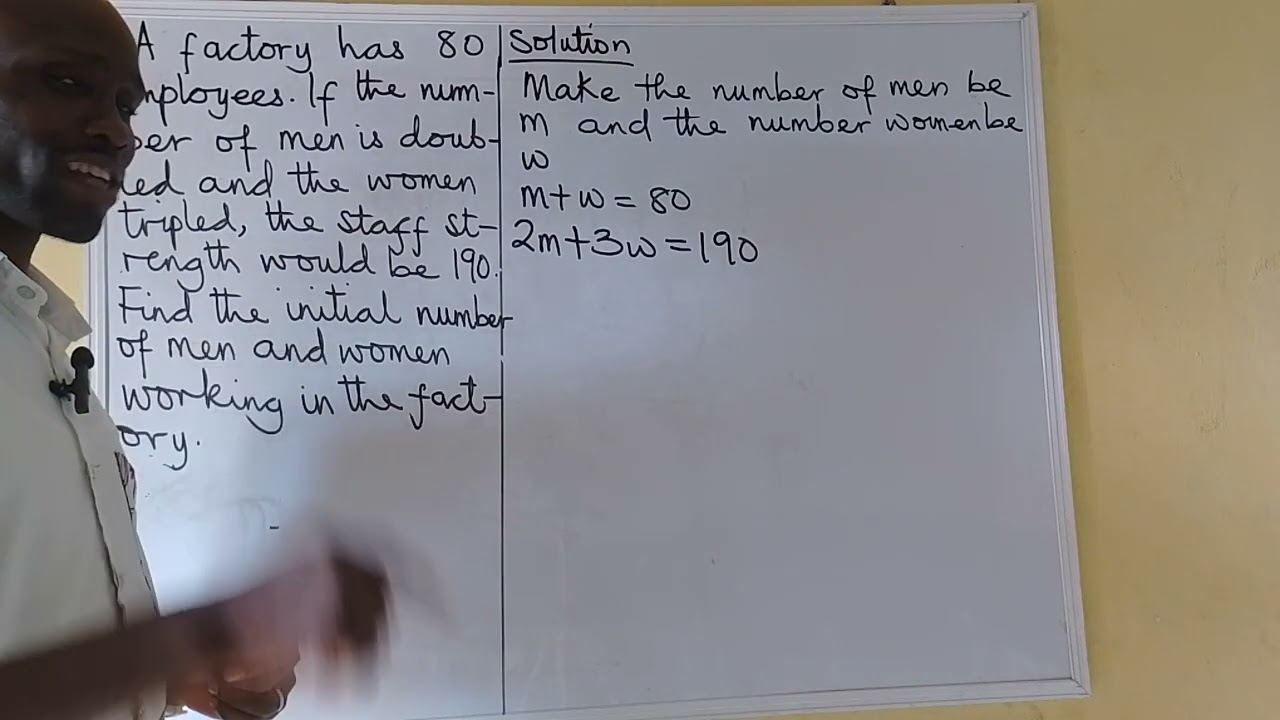 A factory has 80
mployees. If the num-
ber of men is doub-
led and the women
tripled, the staff st-
rength would be 190.
Find the initial number
of men and women
working in the fact-
ory.
Solution
Make the number of men be
m and the number women be
w
m+w = 80
2m+3w = 190